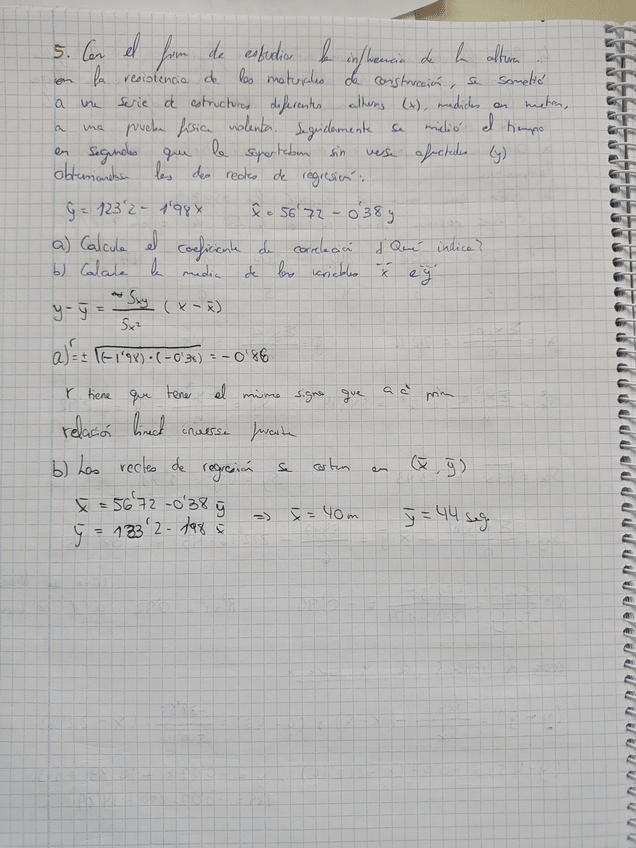 5. Con el fin de estudiar la influencia de la altura
en la resistencia de los materiales de construcción, se sometió
a una serie de estructuras diferentes alturas (x), medidas en metros,
a una prueba física violenta. Seguidamente se midió el tiempo
en segundos que la soportaban sin verse afectadas (y)
obteniendose las dos rectas de regresión:
ŷ = 123'2 - 1'98 x   x̂ = 56'72 - 0'38 y
a) Calcula el coeficiente de correlación ¿Qué indica?
b) Calcula la media de las variables x̄ e ȳ
y - ȳ = Sxy / Sx² (x - x̄)
a) r = ± √(-1'98)·(-0'38) = -0'86
r tiene que tener el mismo signo que a
relación lineal inversa fuerte
b) Las rectas de regresión se cortan en (x̄, ȳ)
x̄ = 56'72 - 0'38 ȳ
ȳ = 123'2 - 1'98 x̄ ⇒ x̄ = 40 m   ȳ = 44 seg.